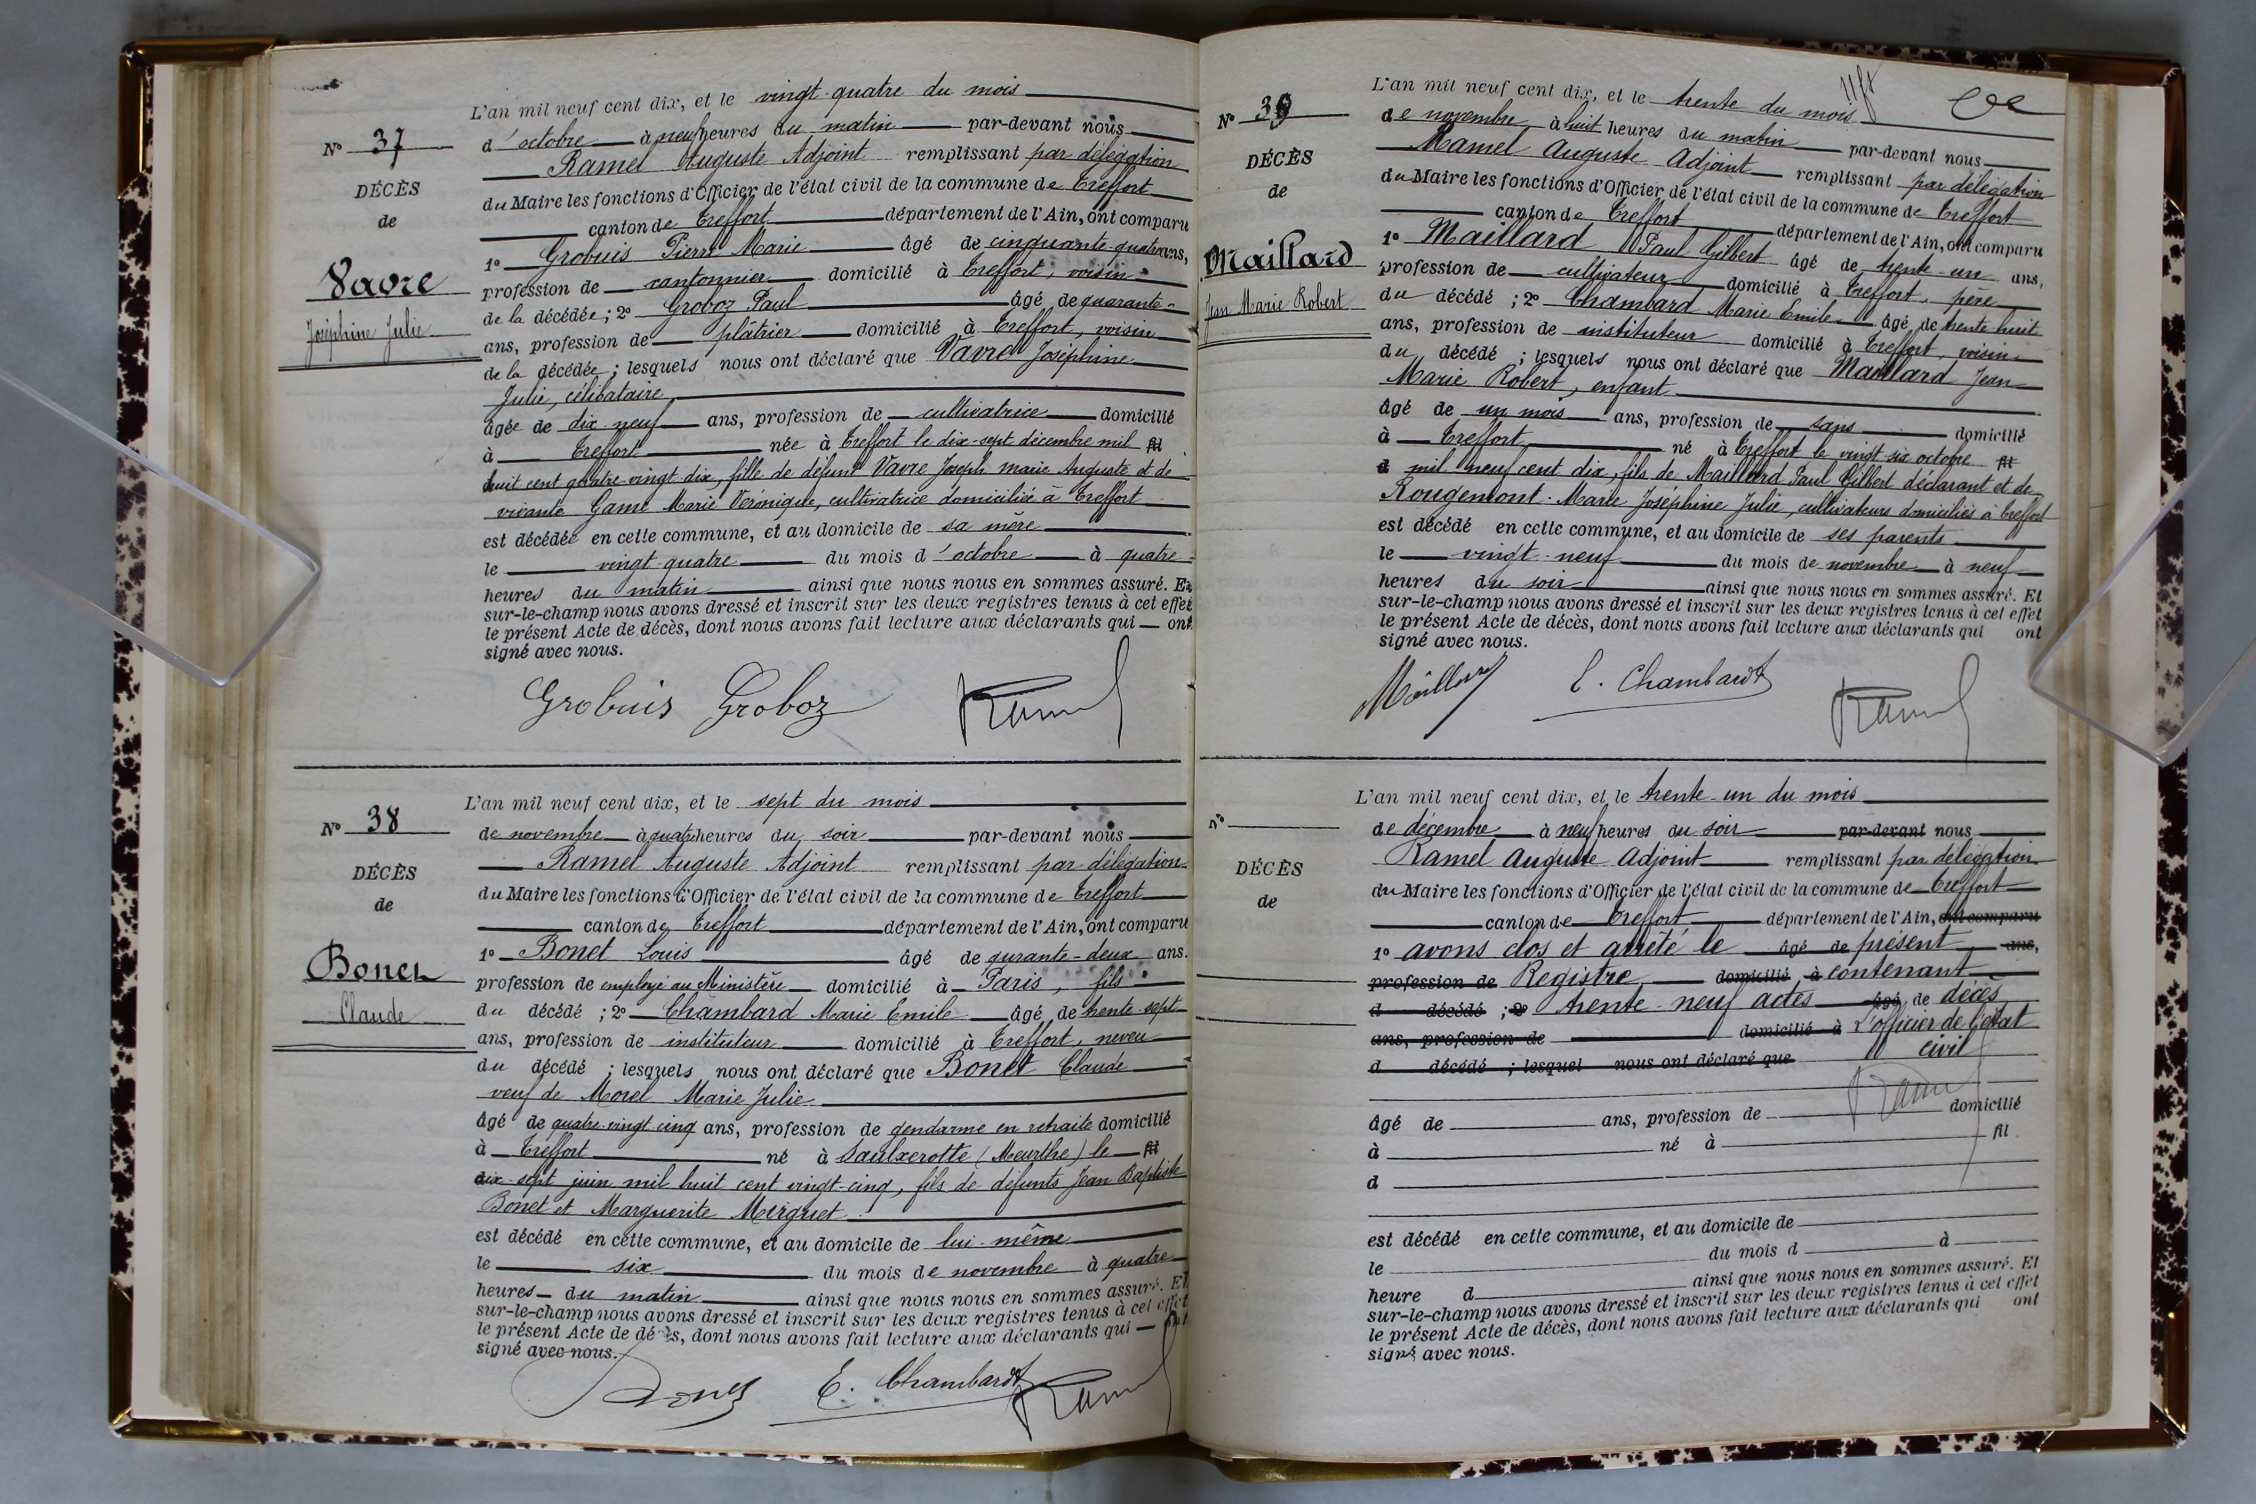 L'an mil neuf cent dix, et le vingt-quatre du mois
N° 37
d'octobre à neuf heures du matin par-devant nous
Ramel Auguste Adjoint remplissant par délégation
DÉCÈS
du Maire les fonctions d'Officier de l'état civil de la commune de Treffort
de
canton de Treffort département de l'Ain, ont comparu
1° Grobuis Pierre Marie âgé de cinquante-quatre ans,
Vavre
profession de cantonnier domicilié à Treffort, voisin
de la décédée ; 2° Groboz Paul âgé de quarante-
Joséphine Julie
ans, profession de plâtrier domicilié à Treffort, voisin
de la décédée ; lesquels nous ont déclaré que Vavre Joséphine
Julie, célibataire,
âgée de dix-neuf ans, profession de cultivatrice domicilié
à Treffort née à Treffort le dix-sept décembre mil fil
huit cent quatre-vingt dix, fille de défunt Vavre Joseph marie Auguste et de
vivante Game Marie Véronique, cultivatrice domiciliée à Treffort
est décédée en cette commune, et au domicile de sa mère
le vingt-quatre du mois d'octobre à quatre
heures du matin ainsi que nous nous en sommes assuré. Et
sur-le-champ nous avons dressé et inscrit sur les deux registres tenus à cet effet
le présent Acte de décès, dont nous avons fait lecture aux déclarants qui ont
signé avec nous.
Grobuis Groboz Ramel
L'an mil neuf cent dix, et le sept du mois
N° 38
de novembre à quatre heures du soir par-devant nous
Ramel Auguste Adjoint remplissant par délégation
DÉCÈS
du Maire les fonctions d'Officier de l'état civil de la commune de Treffort
de
canton de Treffort département de l'Ain, ont comparu
1° Bonet Louis âgé de qurante-deux ans.
Bonet
profession de employé au Ministère domicilié à Paris, fils
Claude
du décédé ; 2° Chambard Marie Emile âgé de trente-sept
ans, profession de instituteur domicilié à Treffort, neveu
du décédé ; lesquels nous ont déclaré que Bonet Claude
veuf de Morel Marie Julie
âgé de quatre-vingt cinq ans, profession de gendarme en retraite domicilié
à Treffort né à Saulxerotte (Meurthe) le fil
dix-sept juin mil huit cent vingt-cinq, fils de défunts Jean Baptiste
Bonet et Marguerite Mirguet
est décédé en cette commune, et au domicile de lui-même
le six du mois de novembre à quatre
heures du matin ainsi que nous nous en sommes assuré. Et
sur-le-champ nous avons dressé et inscrit sur les deux registres tenus à cet effet
le présent Acte de décès, dont nous avons fait lecture aux déclarants qui ont
signé avec nous.
Bonet E. Chambard Ramel
L'an mil neuf cent dix, et le trente du mois
N° 39
de novembre à huit heures du matin par-devant nous
Ramel Auguste Adjoint remplissant par délégation
DÉCÈS
du Maire les fonctions d'Officier de l'état civil de la commune de Treffort
de
canton de Treffort département de l'Ain, ont comparu
1° Maillard Paul Gilbert âgé de trente-un ans,
Maillard
profession de cultivateur domicilié à Treffort, père
Jean Marie Robert
du décédé ; 2° Chambard Marie Emile âgé de trente huit
ans, profession de instituteur domicilié à Treffort, voisin
du décédé ; lesquels nous ont déclaré que Maillard Jean
Marie Robert, enfant
âgé de un mois ans, profession de sans domicilié
à Treffort né à Treffort le vingt six octobre fil
d mil neuf cent dix, fils de Maillard Paul Gilbert déclarant et de
Rougemont Marie Joséphine Julie, cultivateurs domiciliés à Treffort
est décédé en cette commune, et au domicile de ses parents
le vingt-neuf du mois de novembre à neuf
heures du soir ainsi que nous nous en sommes assuré. Et
sur-le-champ nous avons dressé et inscrit sur les deux registres tenus à cet effet
le présent Acte de décès, dont nous avons fait lecture aux déclarants qui ont
signé avec nous.
Maillard E. Chambard Ramel
L'an mil neuf cent dix, et le trente-un du mois
N°
de décembre à neuf heures du soir par-devant nous
Ramel Auguste Adjoint remplissant par délégation
DÉCÈS
du Maire les fonctions d'Officier de l'état civil de la commune de Treffort
de
canton de Treffort département de l'Ain, ont comparu
1° avons clos et arrêté le âgé de présent ans,
profession de Registre domicilié à contenant
d décédé ; 2° trente-neuf actes âgé de décès
ans, profession de domicilié à L'officier de l'état
d décédé ; lesquel nous ont déclaré que civil
Ramel
âgé de ans, profession de domicilié
à né à fil
d
est décédé en cette commune, et au domicile de
le du mois d à
heure d ainsi que nous nous en sommes assuré. Et
sur-le-champ nous avons dressé et inscrit sur les deux registres tenus à cet effet
le présent Acte de décès, dont nous avons fait lecture aux déclarants qui ont
signé avec nous.